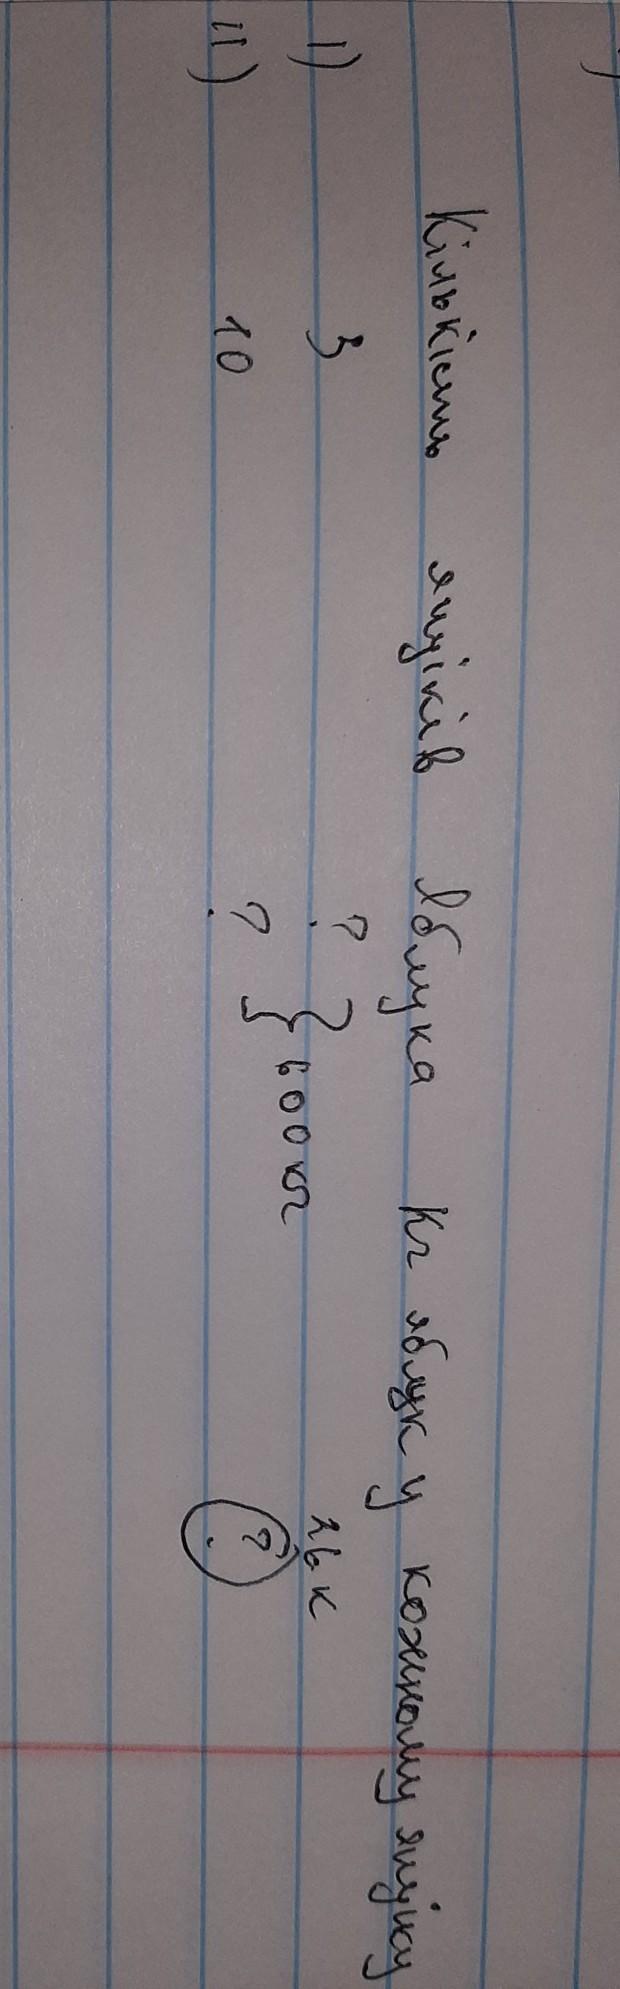 Кількість ящіків Яблука Кг яблук у кожному ящіку
I) 3 ? } 600 кг 26 к
II) 10 ? ?